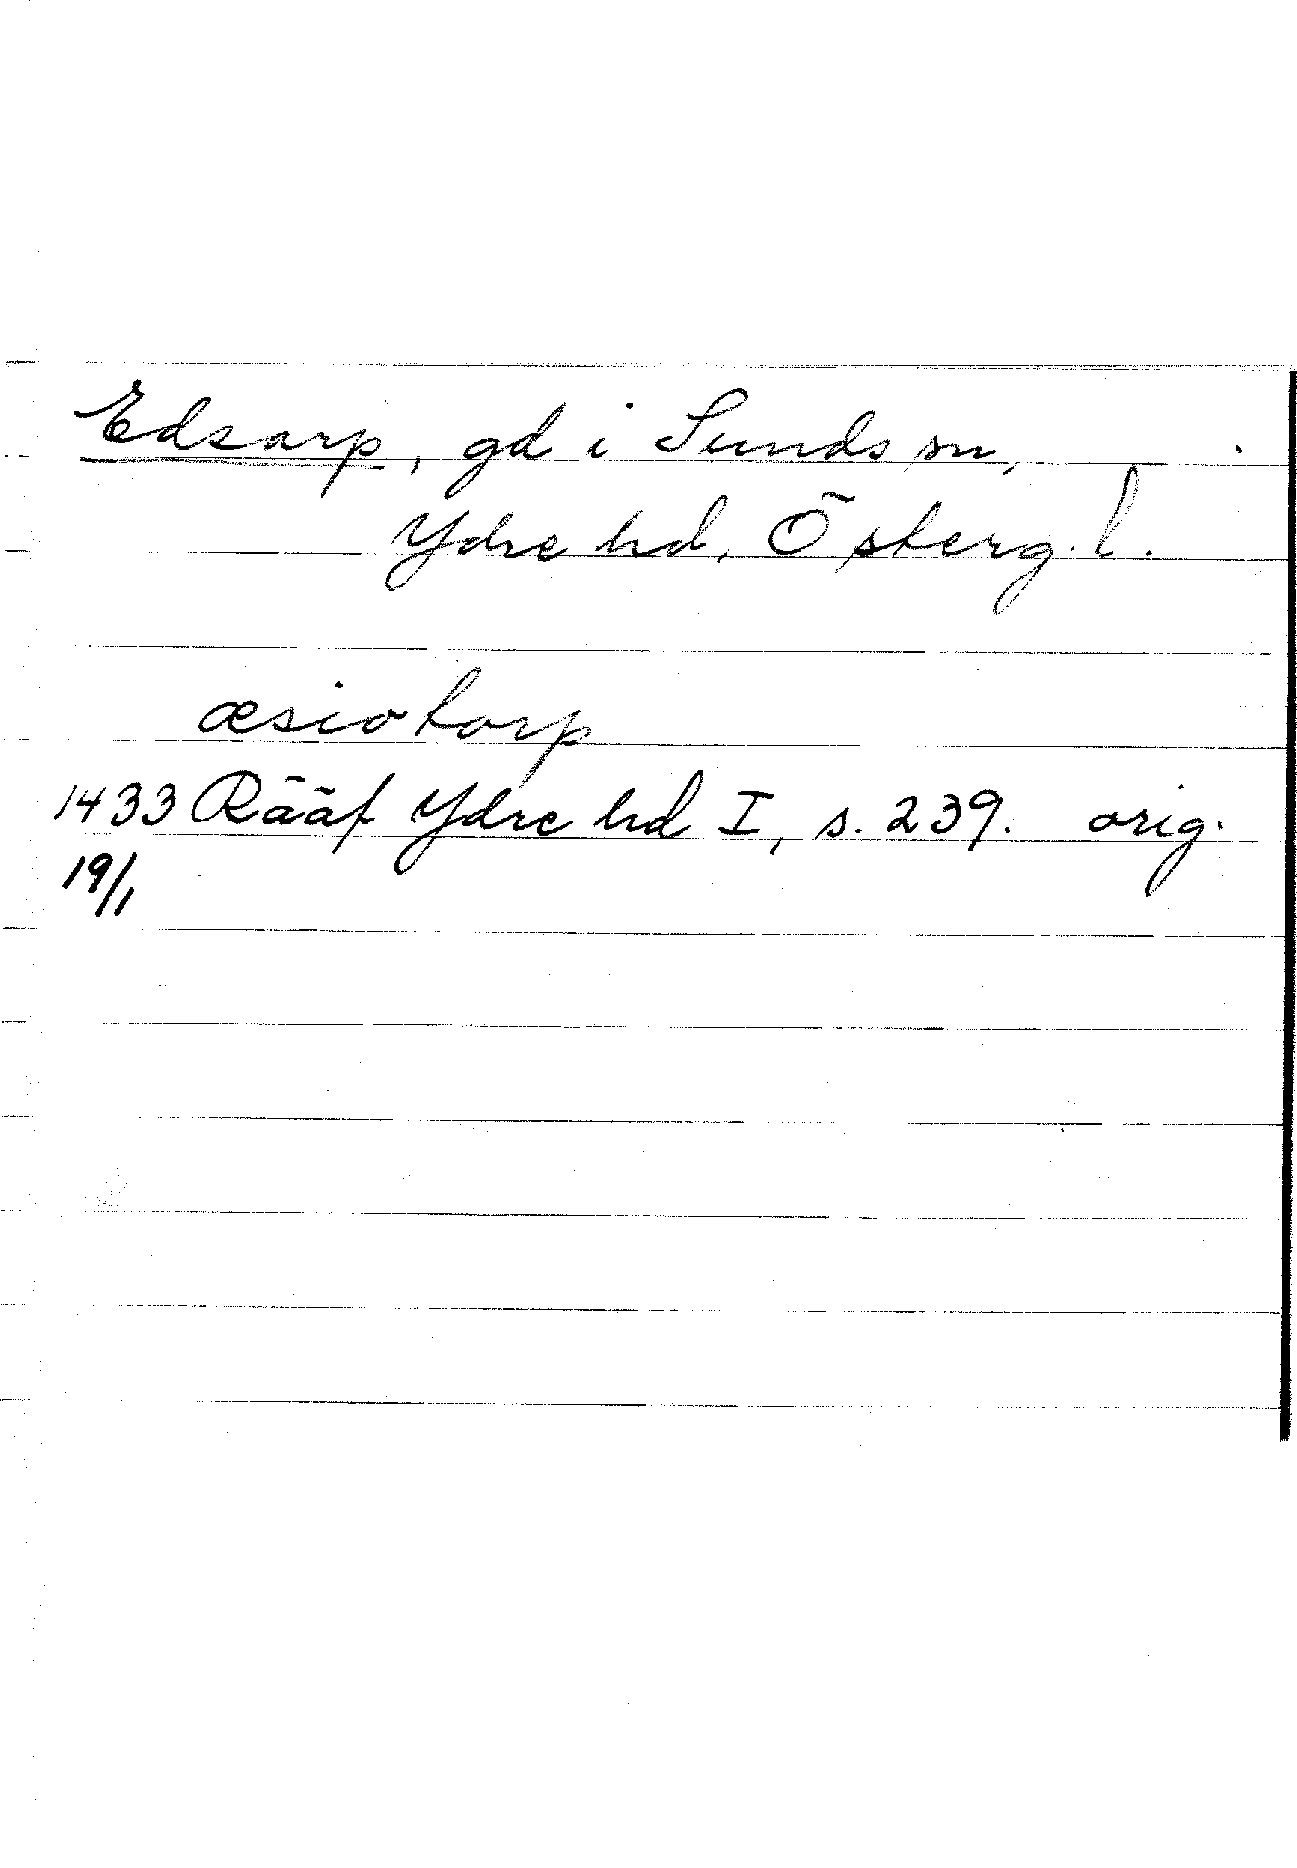 Edsarp, gd i Sunds sn,
Ydre hd, Österg. l.
æsiotorp
1433 Rääf Ydre hd I, s. 239. orig.
19/1